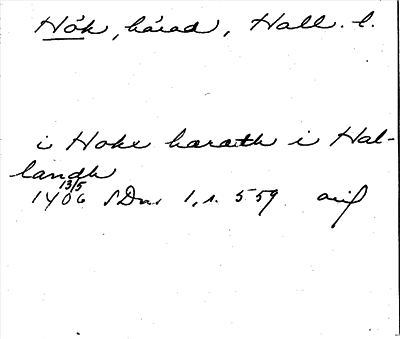 Hök, härad, Hall. l.
i Hoke harath i Hal-
landh
1406 13/5 SDns 1, s. 559 orig